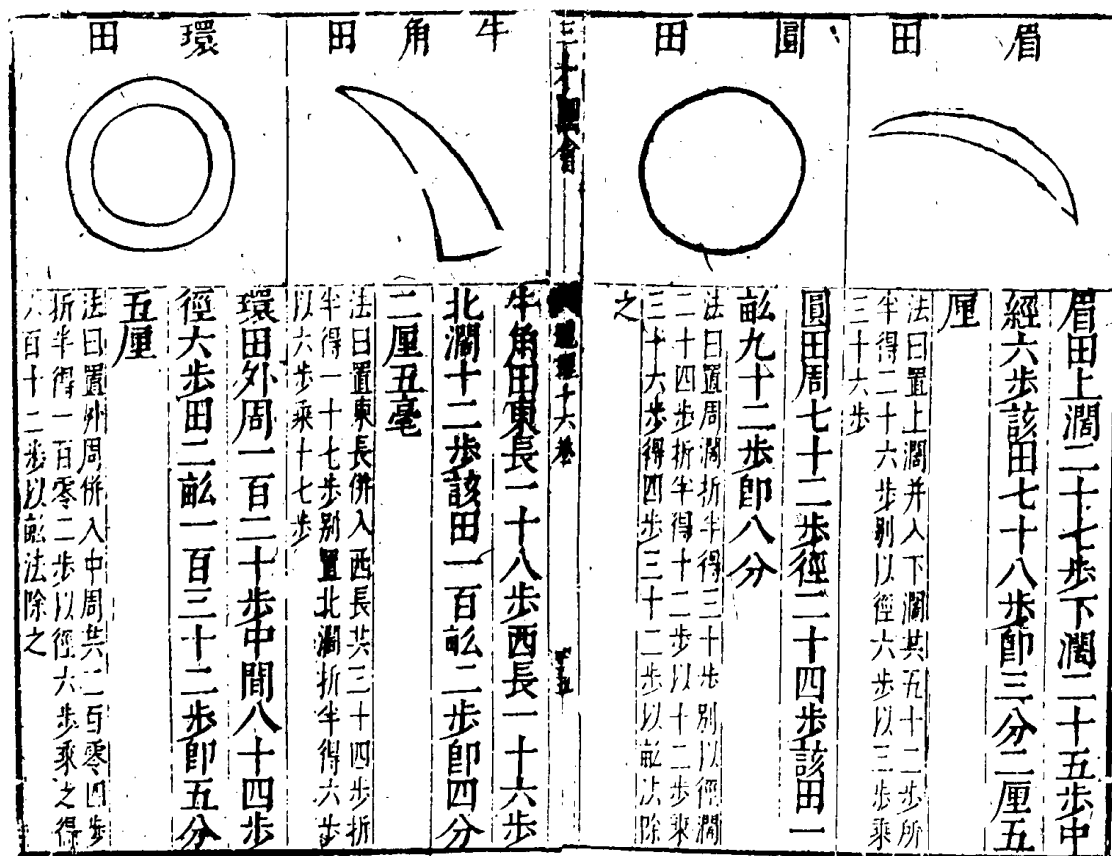 眉田
眉田上濶二十七步下濶二十五步中
經六步該田七十八步卽三分二厘五
厘
法曰置上濶并入下濶其五十二步所
半得二十六步別以徑六步以三步乘
三十六步
圓田
圓田周七十二步徑二十四步該田一
畝九十二步卽八分
法曰置周濶折半得三十步別以徑濶
二十四步折半得十二步以十二步乘
三十六步得四步三十二步以畝法除
之
三才圖會
地理十六卷
牛角田
牛角田東長一十八步西長一十六步
北濶十二步該田一百畝二步卽四分
二厘五毫
法曰置東長併入西長共三十四步折
半得一十七步別置北濶折半得六步
以六步乘十七步
環田
環田外周一百二十步中間八十四步
徑六步田二畝一百三十二步卽五分
五厘
法曰置外周併入中周共二百零四步
折半得一百零二步以徑六步乘之得
六百十二步以畝法除之